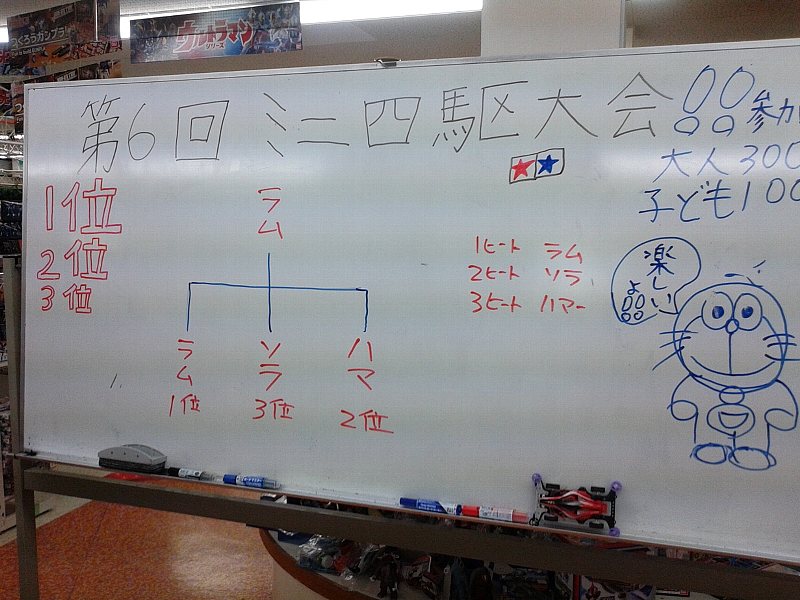 つくろうガンプラ!
ウルトラマン
シリーズ
第6回ミニ四駆大会!!
参加
大人300
子ども100
1位
2位
3位
ラム
1ヒート ラム
2ヒート ソラ
3ヒート ハマー
楽しいよ!!
ラム
1位
ソラ
3位
ハマ
2位